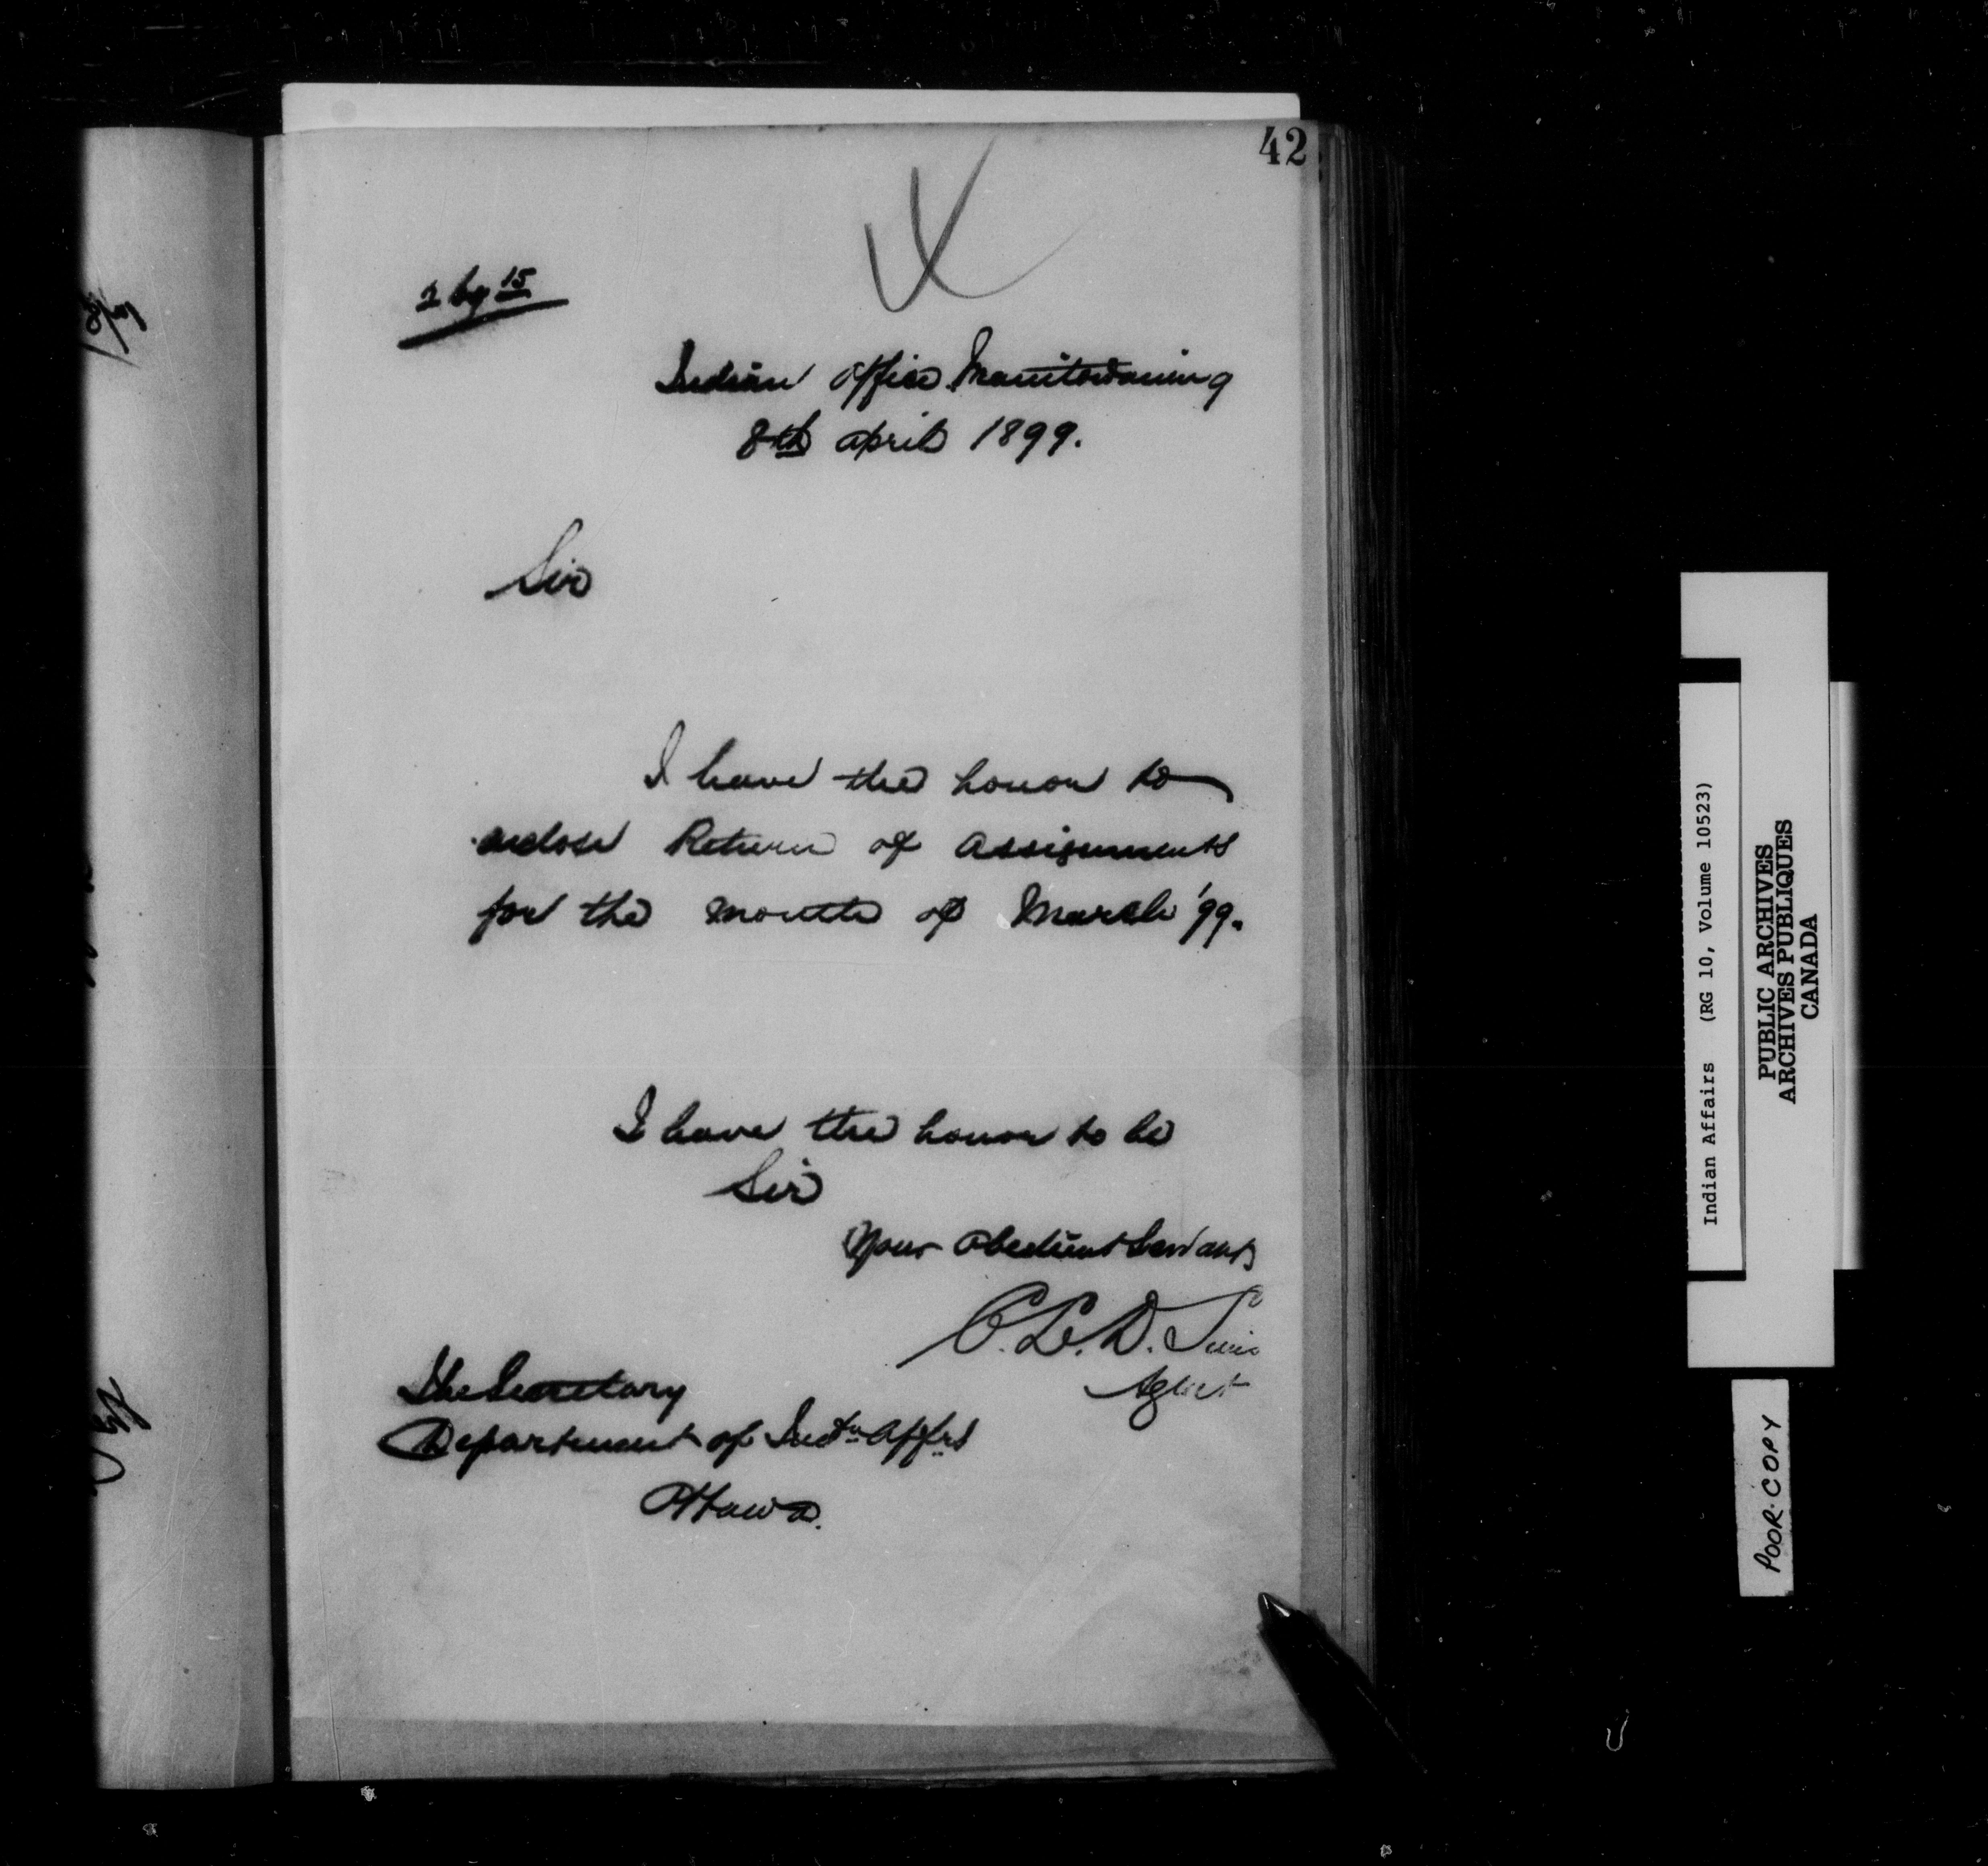 42
2 by 15
Indian Office Manitowaning
8th April 1899.
Sir
I have the honor to
enclose Return of Assignments
for the month of March '99.
I have the honor to be
Sir
Your Obedient Servant
C. L. D. Sims
Agent
The Secretary
Department of Indn Affrs
Ottawa.
Indian Affairs (RG 10, Volume 10523)
PUBLIC ARCHIVES
ARCHIVES PUBLIQUES
CANADA
POOR COPY